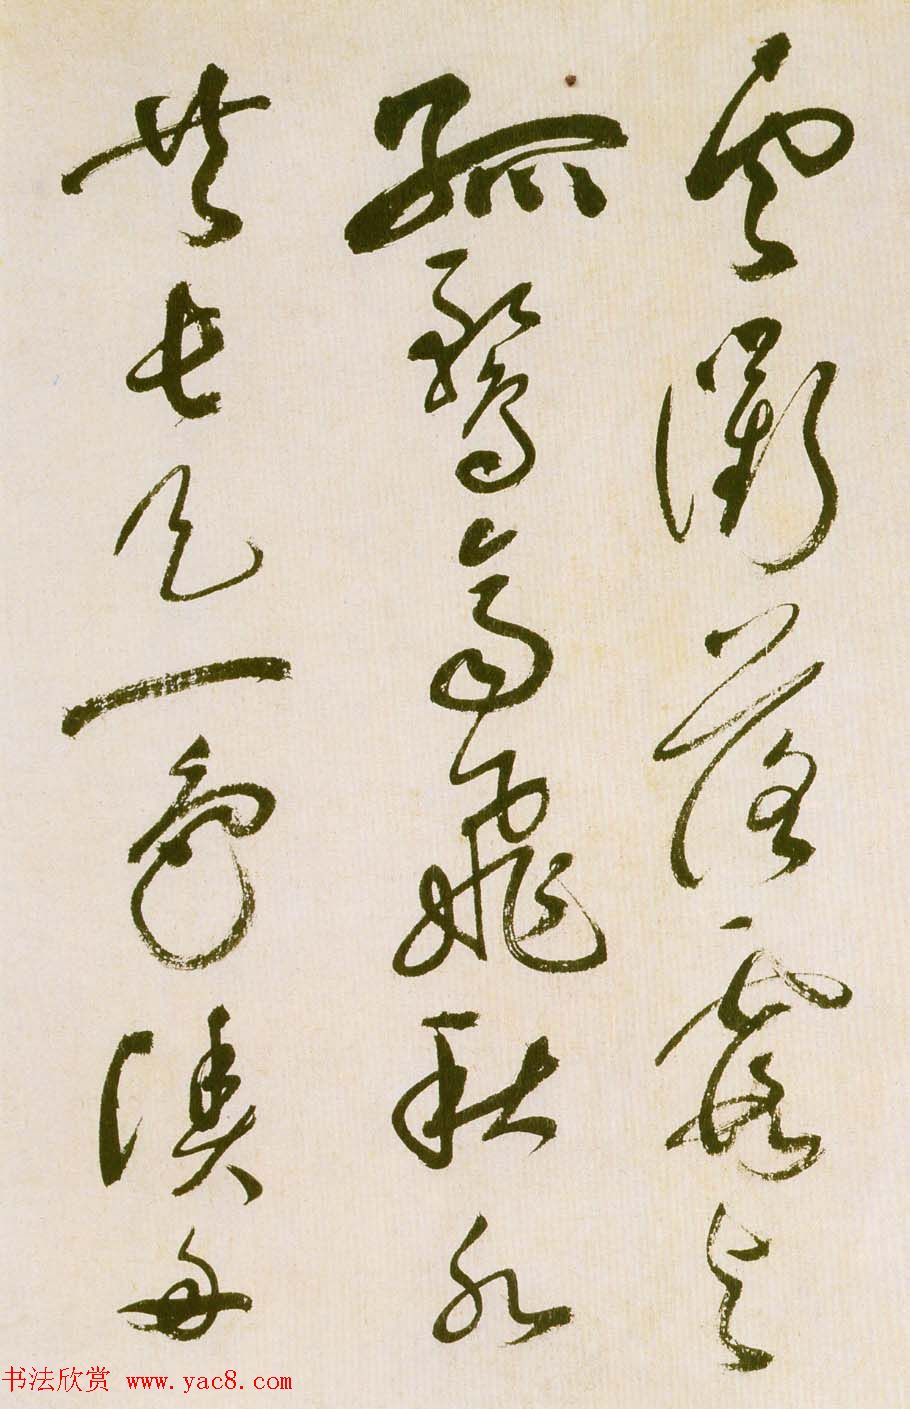 雲衢落霞与
孤鶩齊飛秋水
共長天一色漁舟
书法欣赏 www.yac8.com